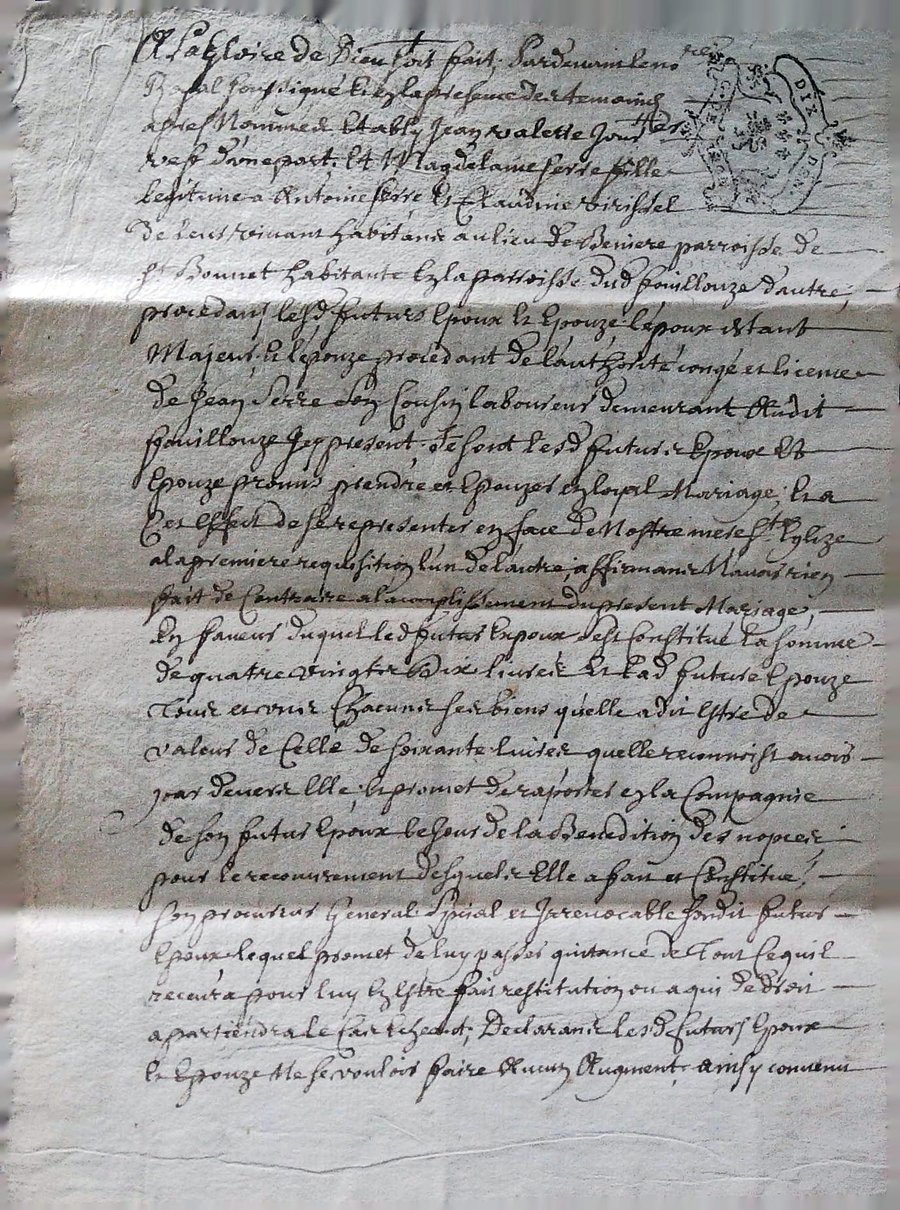 A La gloire de Dieu soit fait, Pardevant le no.re
Royal soussigné Et en la presence des temoins
apres Nommes Etably Jean valette
d'une part, Et Magdelaine serre fille
Legitime a Antoine serre Et Claudine
De leur vivant habitans au lieu de Beniere parroisse de
st Bonnet habitante En la parroisse dud fouillouze d'autre,
procedans lesd futurs Epoux Et Epouze, lepoux estant
Majeur, Et lépouze procedant de l'authorité congé et licence
de Jean Serre Son Cousin laboureur demeurant Audit
fouillouze Icy present, Se sont lesd futurs Epoux Et
Epouze promis prendre et Epouzer en loyal Mariage, Et a
Cet Effect de se representer en face de Nostre mere ste Eglize
a la premiere requisition l'un de l'autre, affirmans N'avoir rien
fait de Contraire a lacomplissement du present Mariage,
En faveur duquel led futur Expoux s'est Constitué La somme
de quatre vingts Dix livres Et Lad future Epouze
Tous et uns Chacuns ses biens qu'elle a dit Estre de
valeur de Celle de soixante livres quelle reconnoist avoir
devers Elle, Et promet de raporter en la Compagnie
de son futur Epoux le Jour de la Benedition des nopces,
pour le recouvrement desquels Elle a fait et Constitué,
son procureur General Special et Irrevocable sondit futur
Epoux lequel promet de luy passer quitance de Tout Ce quil
recevra pour luy En Estre fait restitution ou a qui de droit
apartiendra le Cas Echeant, Declarans lesd futurs Epoux
Et Epouze Ne se vouloir faire Aucun Augment, ainsy convenu
DIX DEN